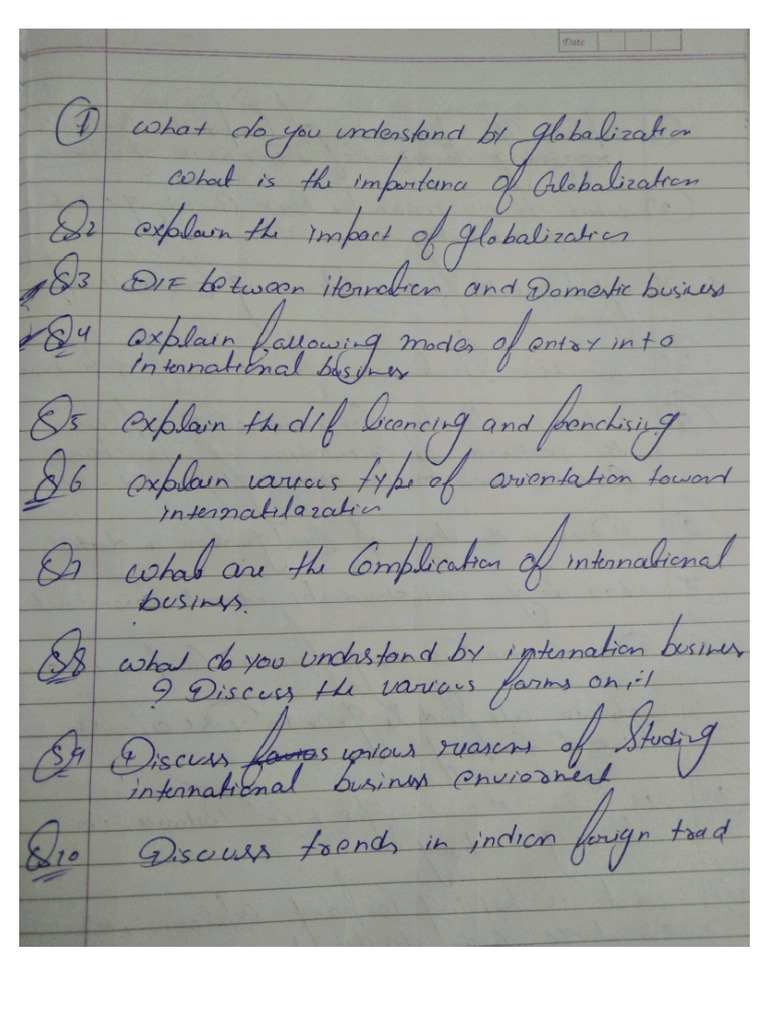 Date
1 what do you understand by globalization
what is the importana of Globalization
Q2 explain the impact of globalization
Q3 DIF between iternation and Domestic business
Q4 explain following modes of entry into
international business
Q5 explain the dif licencing and frenchising
Q6 explain various type of orientation toward
internatilazation
Q7 what are the Complication of international
business.
Q8 what do you undrstand by internation business
? Discuss the various forms on it
Q9 Discuss reasons of Studing
international business enviorment
Q10 Discuss trends in indian forign trad